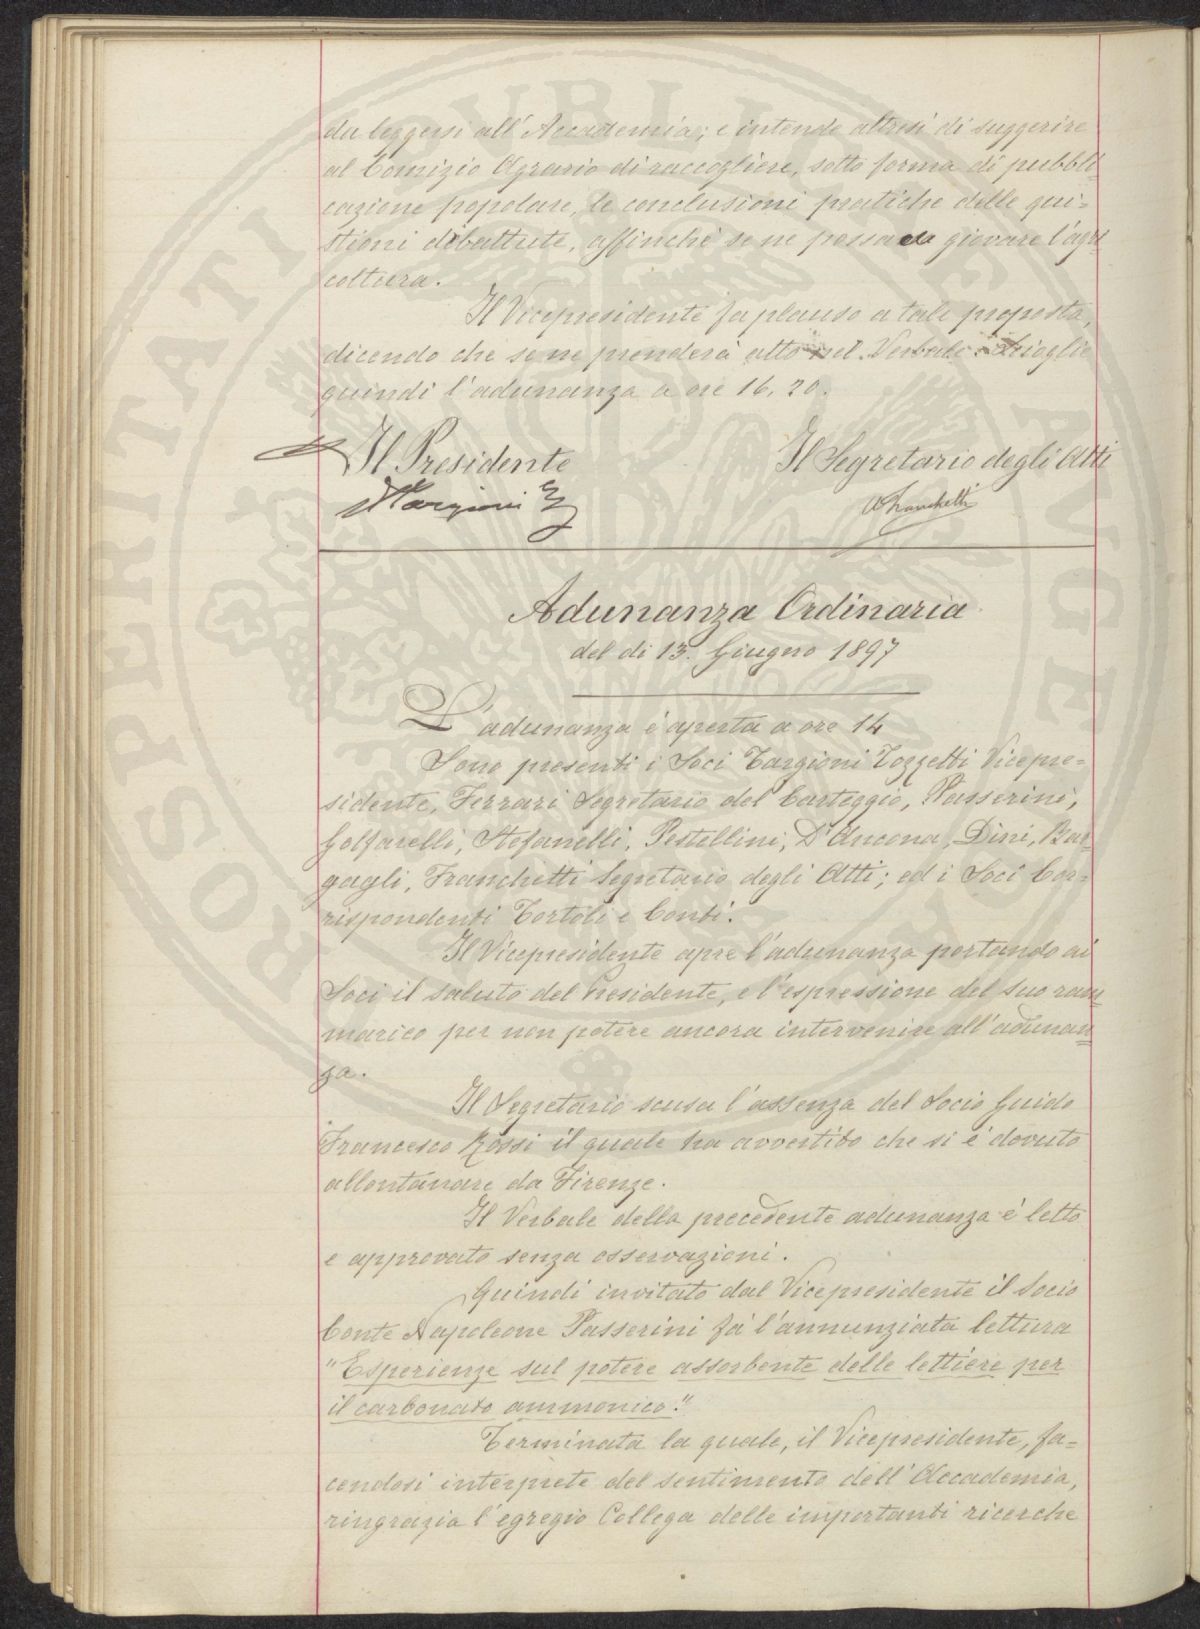 da leggersi all'Accademia; e intende altresì di suggerire
al Comizio Agrario di raccogliere, sotto forma di pubbli=
cazione popolare, le conclusioni pratiche delle qui=
stioni dibattute, affinchè se ne possa giovare l'agri=
coltura.
Il Vicepresidente fa plauso a tale proposta,
dicendo che se ne prenderà atto nel Verbale. Scioglie
quindi l'adunanza a ore 16,20.
Il Presidente
Il Segretario degli Atti
Targioni Tz
A Franchetti
Adunanza Ordinaria
del dì 13. Giugno 1897
L'adunanza è aperta a ore 14
Sono presenti i Soci Targioni Tozzetti Vicepre=
sidente, Ferrari Segretario del Carteggio, Passerini,
Golfarelli, Stefanelli, Pestellini, D'Ancona, Dini, Bar=
gagli, Franchetti Segretario degli Atti; ed i Soci Cor=
rispondenti Tortoli e Conti.
Il Vicepresidente apre l'adunanza portando ai
Soci il saluto del Presidente, e l'espressione del suo ram=
marico per non potere ancora intervenire all'adunan=
za.
Il Segretario scusa l'assenza del Socio Guido
Francesco Rossi il quale ha avvertito che si è dovuto
allontanare da Firenze.
Il Verbale della precedente adunanza è letto
e approvato senza osservazioni.
Quindi invitato dal Vicepresidente il Socio
Conte Napoleone Passerini fa l'annunziata lettura
"Esperienze sul potere assorbente delle lettiere per
il carbonato ammonico."
Terminata la quale, il Vicepresidente, fa=
cendosi interprete del sentimento dell'Accademia,
ringrazia l'egregio Collega delle importanti ricerche
PROSPERITATI PUBLICAE AUGENDAE